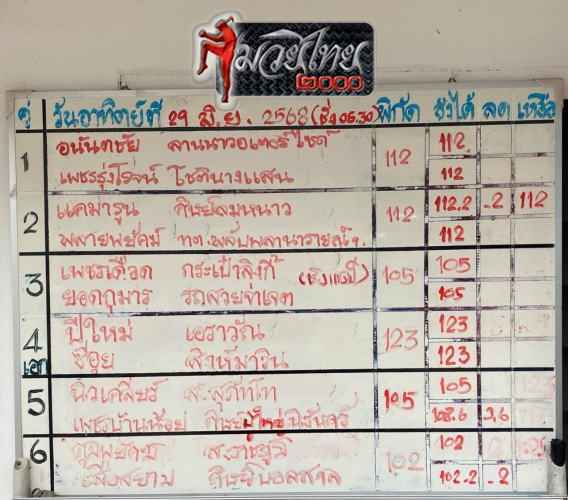 มวยไทย
๒๐๐๐
คู่ วันอาทิตย์ที่ 29 มิ.ย. 2568 (ชั่ง 05.30) พิกัด ชั่งได้ ลด เหลือ
1 อนันตชัย ลานนาวอเตอร์ไซด์ 112 112
เพชรรุ่งโรจน์ โชตินางแสน 112
2 แคมารูน ศิษย์ลมหนาว 112 112.2 .2 112
พลายพยัคฆ์ 112
3 เพชรเดือด กระเป๋าลิงกี้ 105 105
ยอดกุมาร รถสวยจ่าเจต 105
4 ปีใหม่ เอราวัณ 123 123
เอก ขีอุย สิงห์มาวิน 123
5 นิวเคลียร์ ส.สุภัทโท 105 105
เพชรบ้านห้วย 108.6 3.6
6 102 102
แสงสยาม 102.2 .2